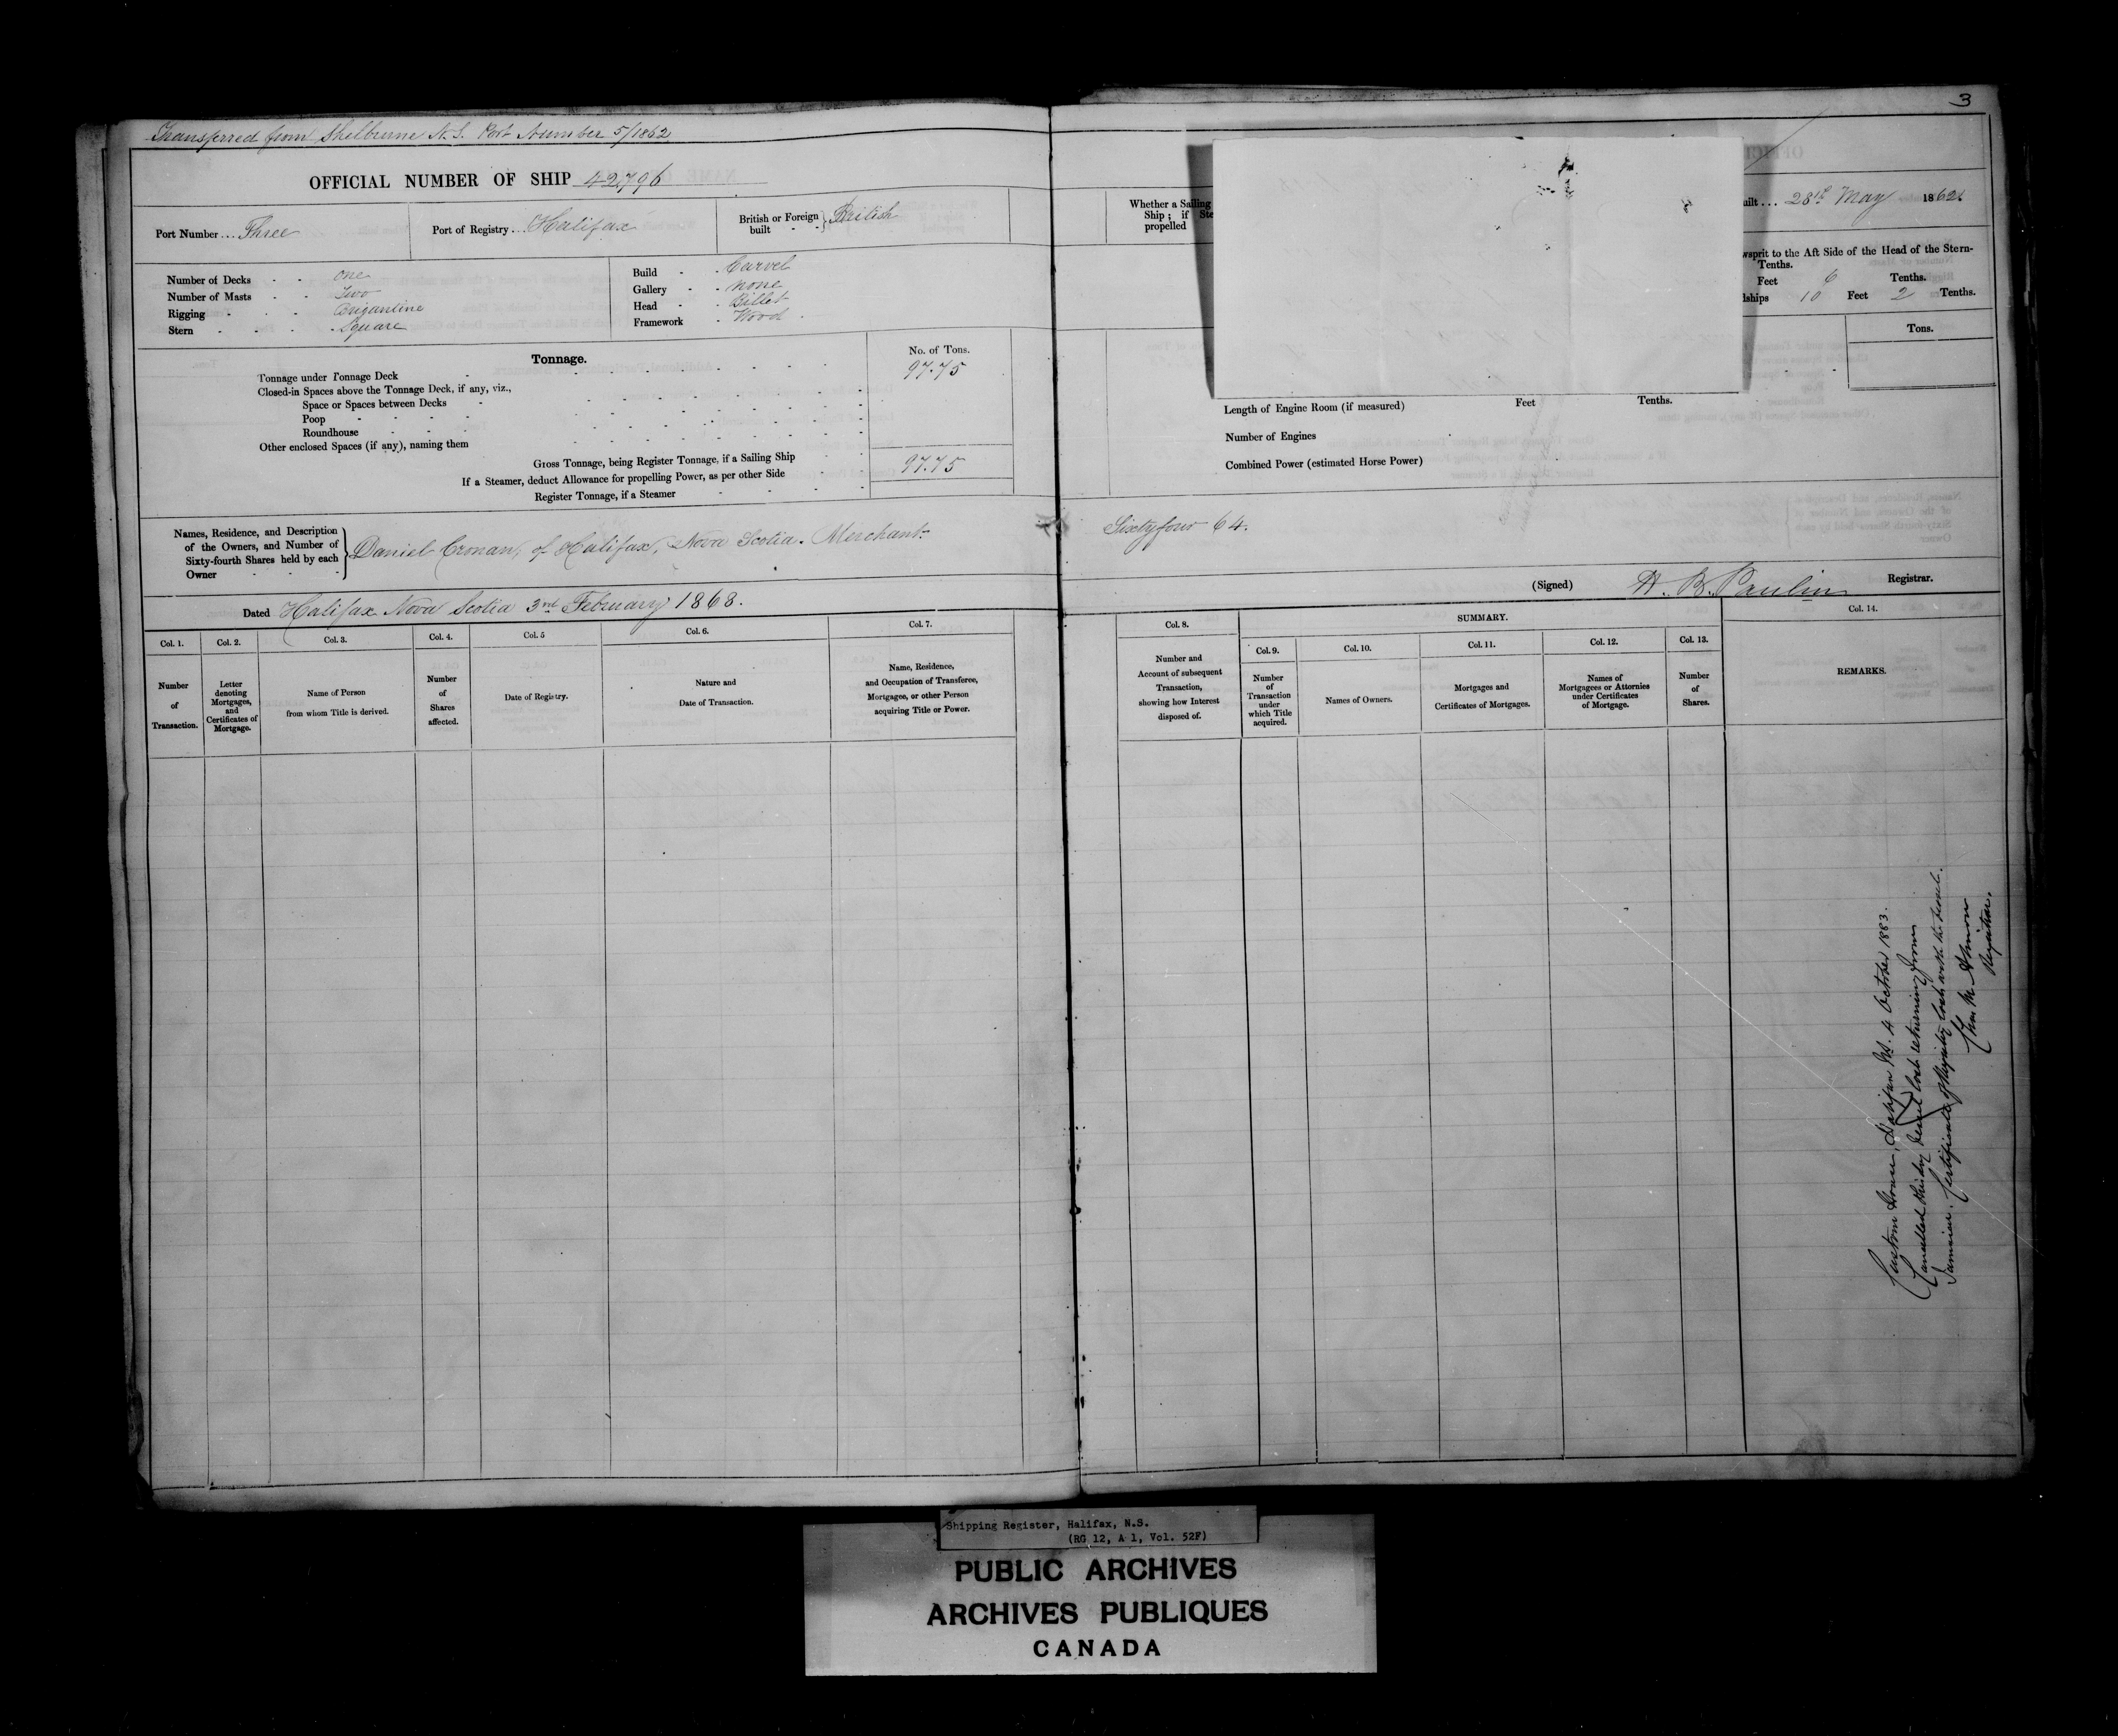 3
Transferred from Shelburne N.S. Port Number 5/1862
OFFICIAL NUMBER OF SHIP 42,796
Port Number ... Three
Port of Registry ... Halifax
British or Foreign built - - } British
Number of Decks - - one
Number of Masts - - Two
Rigging - - - Brigantine
Stern - - - - Square
Build - - Carvel
Gallery - - none
Head - - Billet
Framework - Wood
Tonnage.
No. of Tons.
Tonnage under Tonnage Deck 97.75
Closed-in Spaces above the Tonnage Deck, if any, viz.,
Space or Spaces between Decks
Poop
Roundhouse
Other enclosed Spaces (if any), naming them
Gross Tonnage, being Register Tonnage, if a Sailing Ship 97.75
If a Steamer, deduct Allowance for propelling Power, as per other Side
Register Tonnage, if a Steamer
Names, Residence, and Description
of the Owners, and Number of
Sixty-fourth Shares held by each
Owner
Daniel Cronan, of Halifax, Nova Scotia. Merchant
Dated Halifax Nova Scotia 3rd February 1868.
Col. 1. Col. 2. Col. 3. Col. 4. Col. 5 Col. 6. Col. 7.
Number of Transaction.
Letter denoting Mortgages, and Certificates of Mortgage.
Name of Person from whom Title is derived.
Number of Shares affected.
Date of Registry.
Nature and Date of Transaction.
Name, Residence, and Occupation of Transferee, Mortgagee, or other Person acquiring Title or Power.
Whether a Sailing
Ship; if Ste
propelled
uilt ... 28th May 1862
wsprit to the Aft Side of the Head of the Stern-
Tenths.
Feet 6 Tenths.
dships 10 Feet 2 Tenths.
Tons.
Length of Engine Room (if measured) Feet Tenths.
Number of Engines
Combined Power (estimated Horse Power)
Sixty four 64.
(Signed) H. B. Paulin Registrar.
Col. 8. SUMMARY. Col. 14.
Col. 9. Col. 10. Col. 11. Col. 12. Col. 13.
Number and Account of subsequent Transaction, showing how Interest disposed of.
Number of Transaction under which Title acquired.
Names of Owners.
Mortgages and Certificates of Mortgages.
Names of Mortgagees or Attornies under Certificates of Mortgage.
Number of Shares.
REMARKS.
Custom House, Halifax NS. 4 October 1883.
Cancelled this day Vessel lost returning from
Jamaica. Certificate of Registry lost with the vessel.
Chas M Almon
Registrar.
Shipping Register, Halifax, N.S.
(RG 12, A 1, Vol. 52F)
PUBLIC ARCHIVES
ARCHIVES PUBLIQUES
CANADA